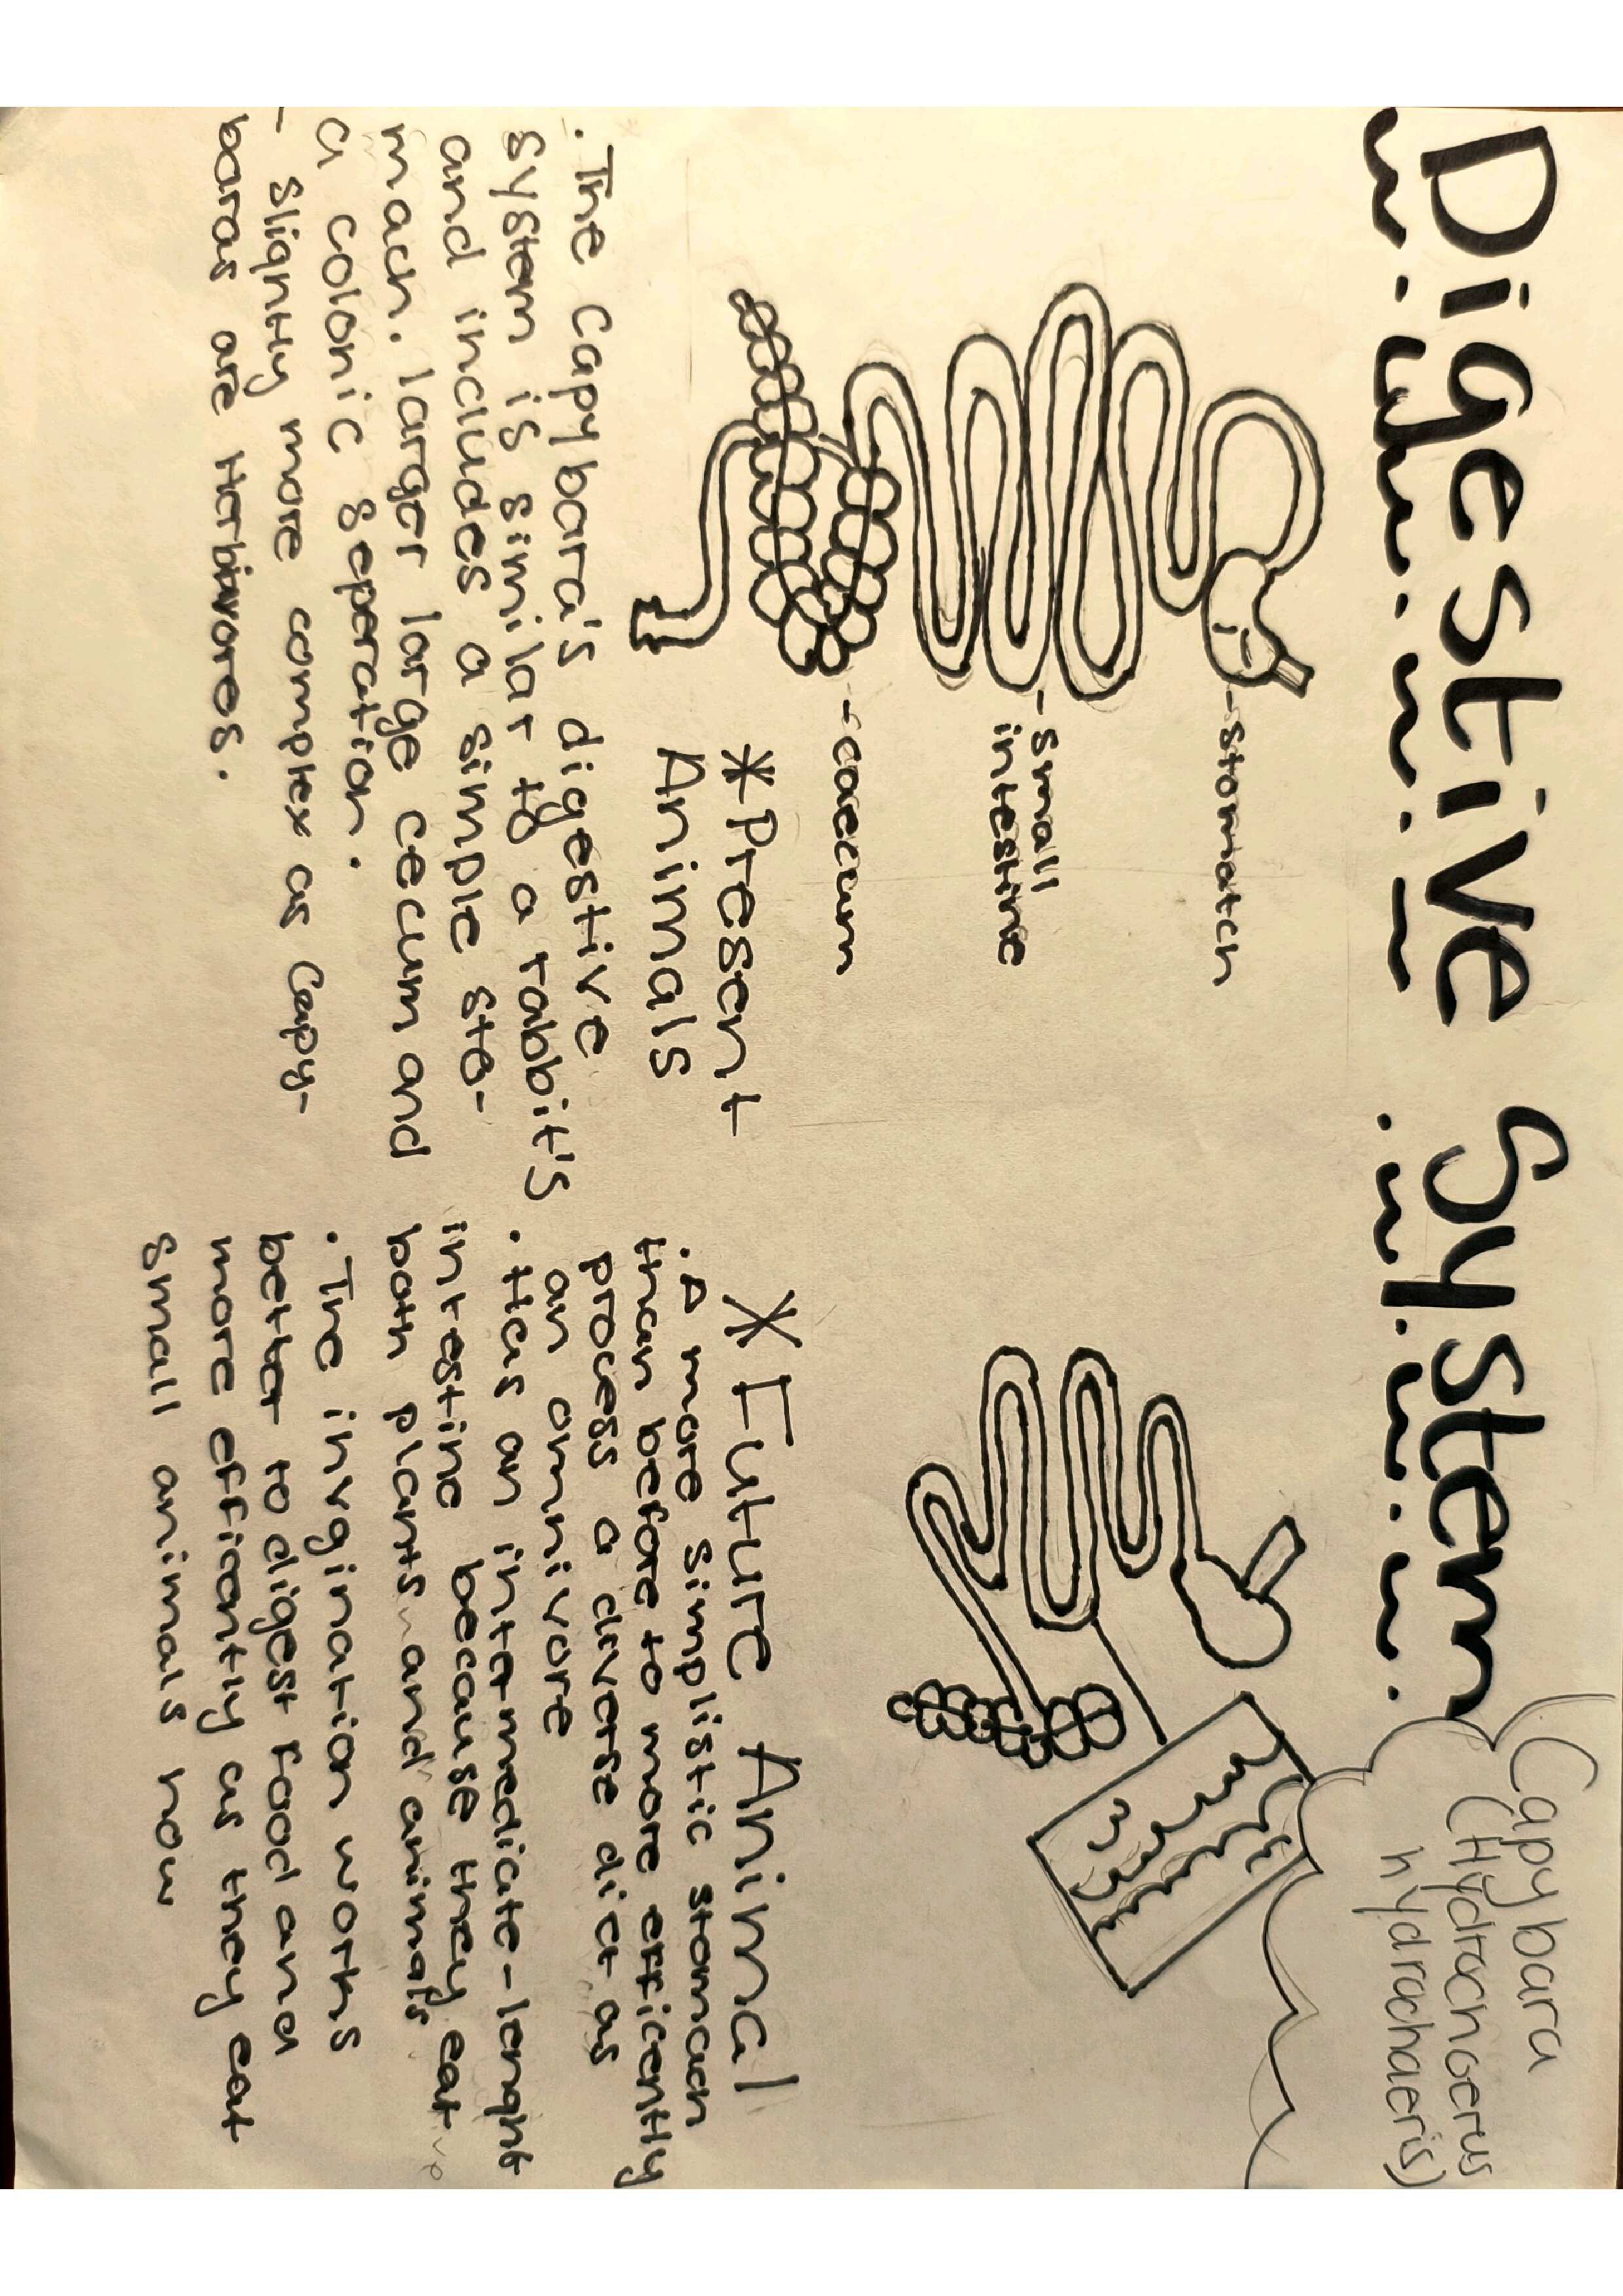 Digestive System
Capybara
(Hydrochoerus
hydrochaeris)
-stomatch
-small
intestine
-caecum
*Present
Animals
. The Capybara's digestive
system is similar to a rabbit's
and includes a simple sto-
mach. larger large cecum and
a colonic seperation.
- Slightly more complex as Capy-
baras are Herbivores.
*Future Animal
. A more simplistic stomach
than before to more efficently
process a diverse diet as
an omnivore
. Has an intermediate-lenght
intestine because they eat
both plants and animals
. The invgination works
better to digest food and
more efficantly as they eat
small animals now